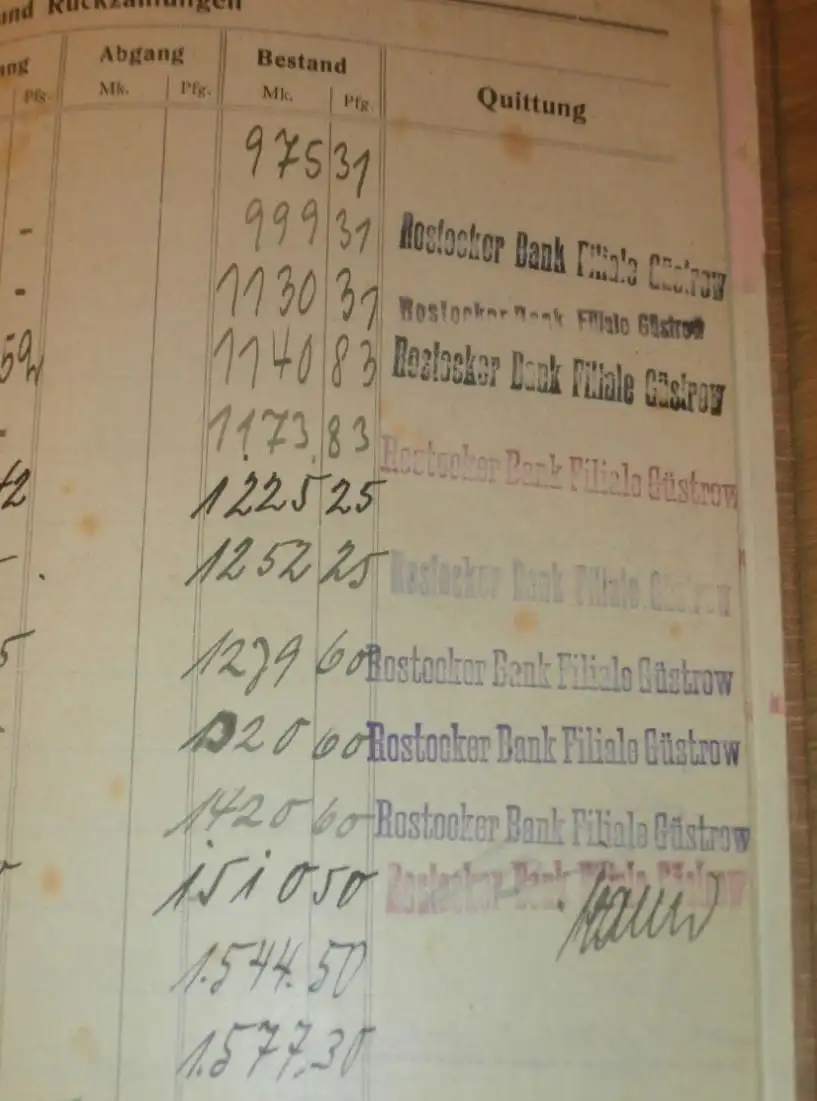 und Rückzahlungen
ang Abgang Bestand Quittung
Pfg. Mk. Pfg. Mk. Pfg.
975 31
- 999 31 Rostocker Bank Filiale Güstrow
- 1130 31 Rostocker Bank Filiale Güstrow
52 1140 83 Rostocker Bank Filiale Güstrow
- 1173 83 Rostocker Bank Filiale Güstrow
42 1225 25
- 1252 25 Rostocker Bank Filiale Güstrow
5 1279 60 Rostocker Bank Filiale Güstrow
1320 60 Rostocker Bank Filiale Güstrow
1420 60 Rostocker Bank Filiale Güstrow
1510 50 Rostocker Bank Filiale Güstrow
1.544.50
1.577,30